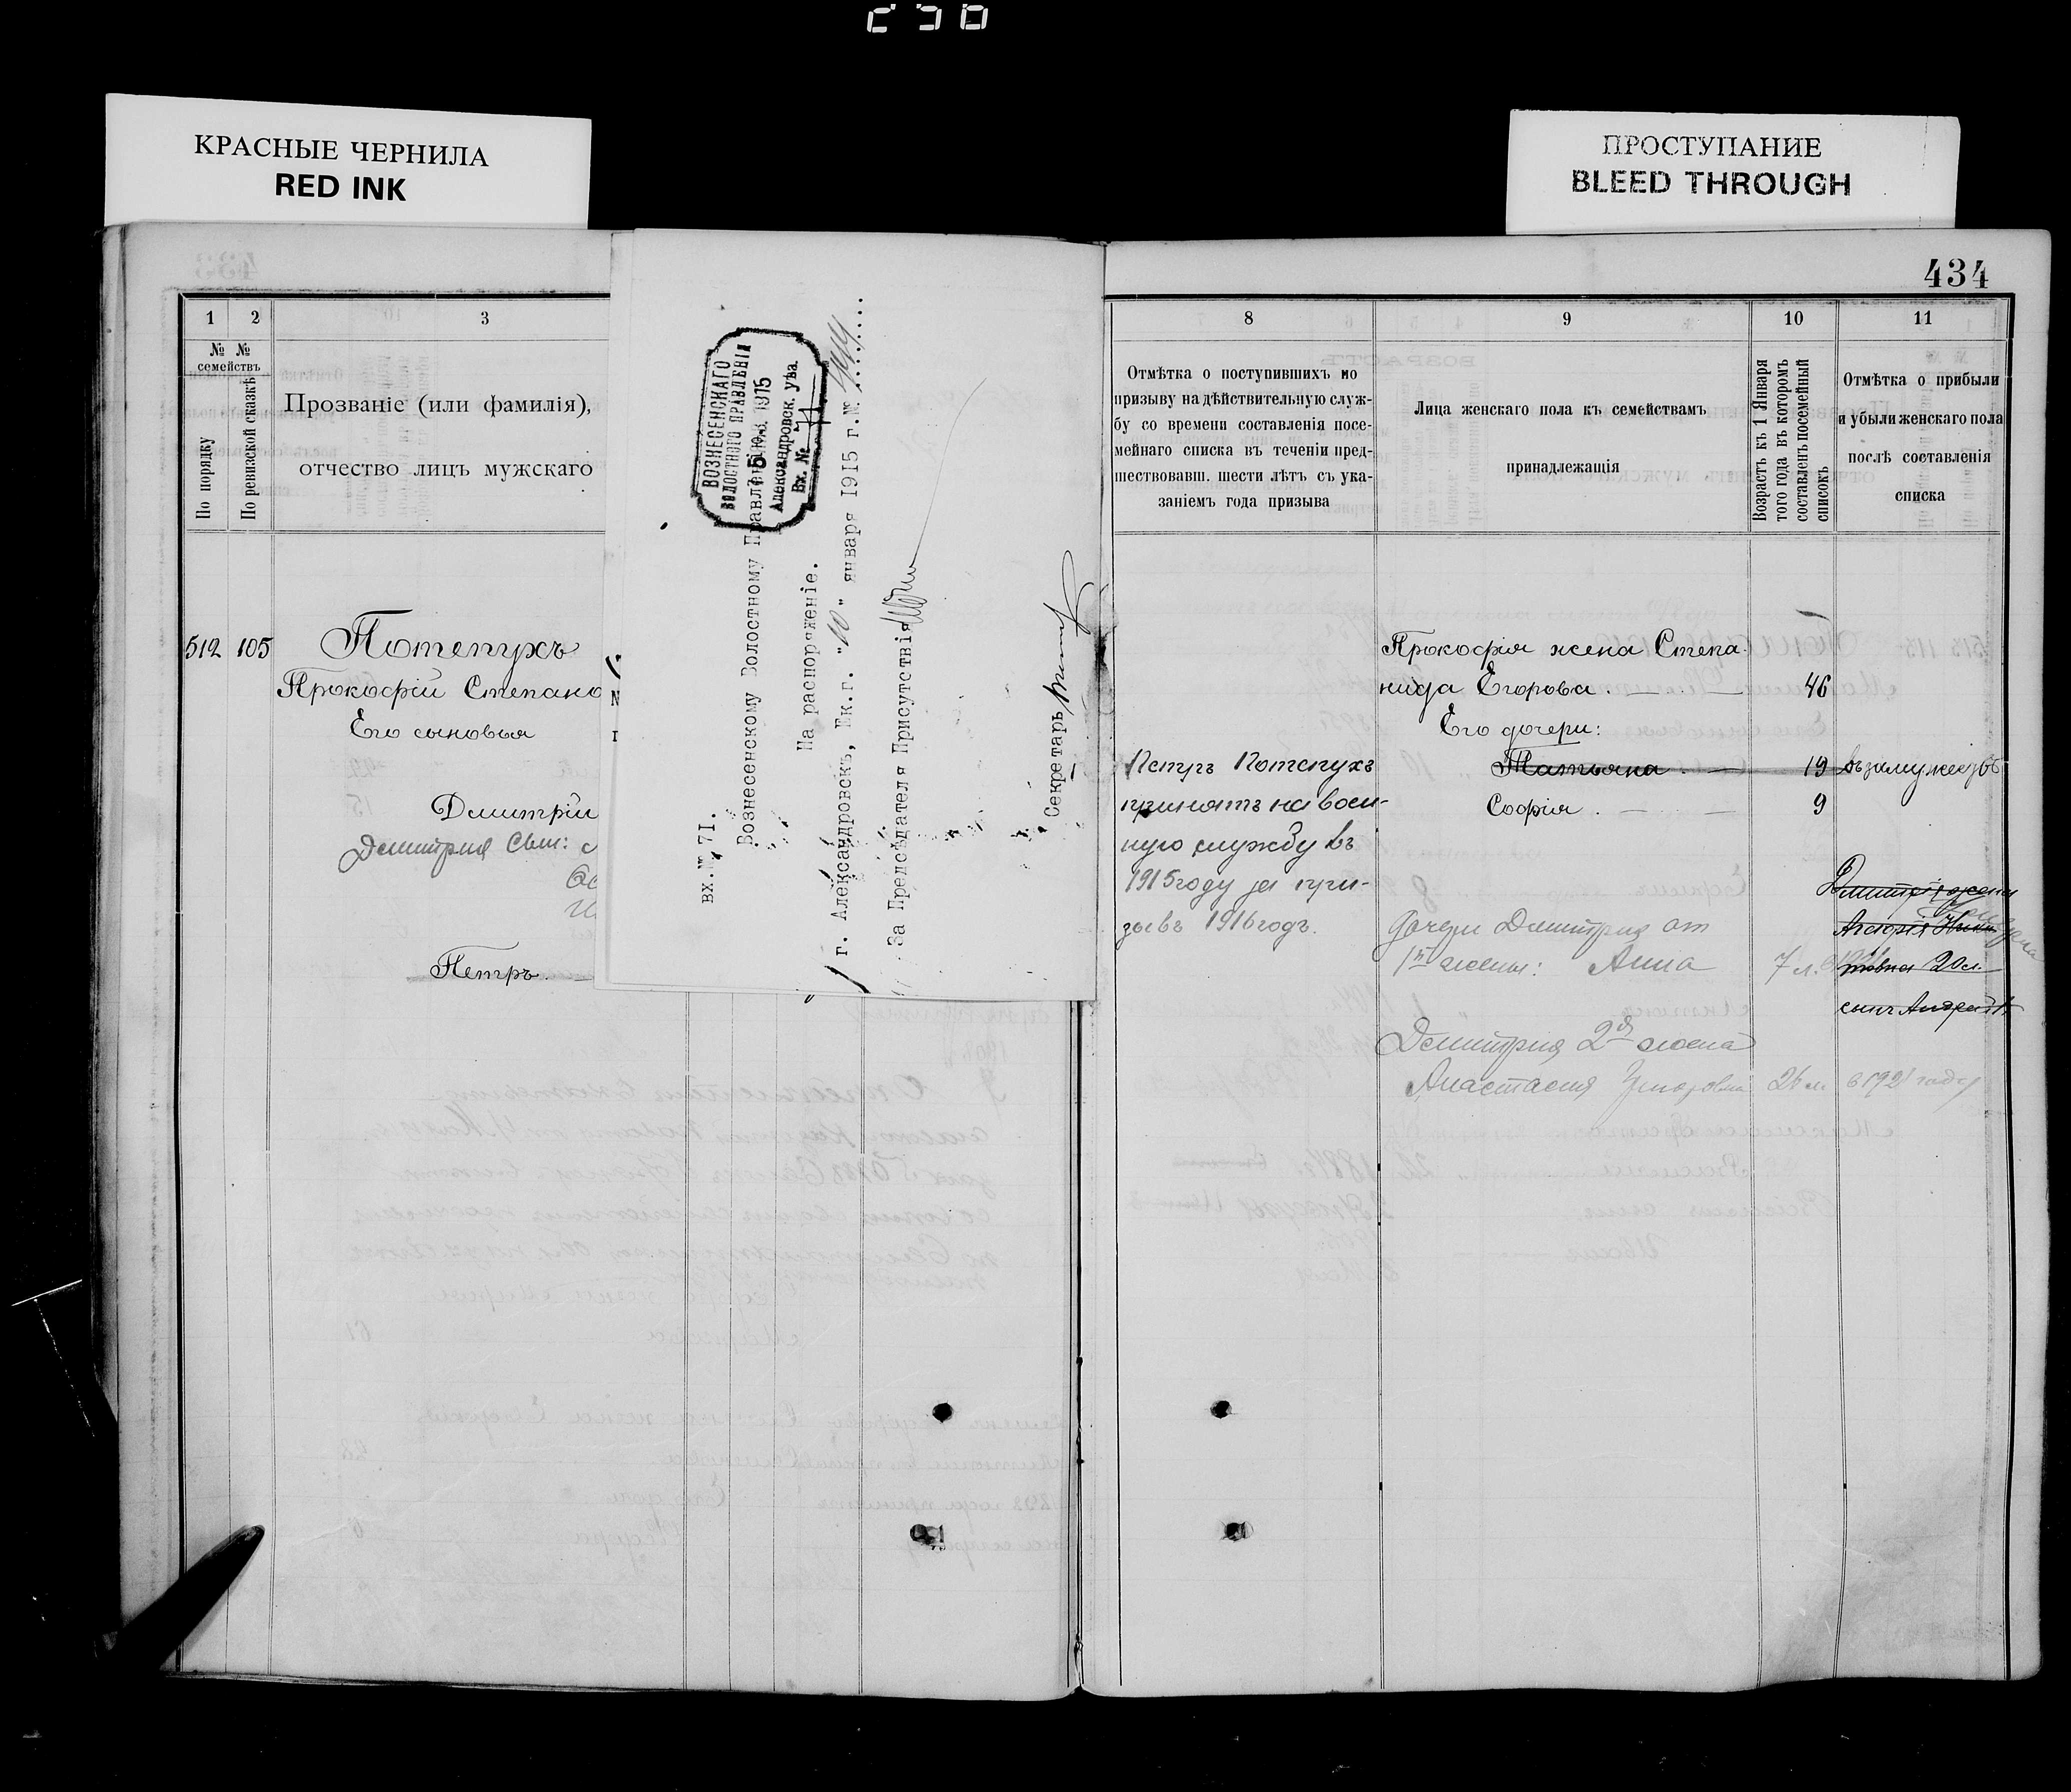 КРАСНЫЕ ЧЕРНИЛА
RED INK
ПРОСТУПАНИЕ
BLEED THROUGH
434
1 2 3
№ № семействъ
По порядку
По ревизской сказкѣ
Прозваніе (или фамилія),
отчество лицъ мужскаго
512 105 Потепухъ
Прокофій Степано
Его сыновья
Дмитрій
Дмитрия сын:
Петръ.
вх.№ 71.
Вознесенскому Волостному Правленію.
ВОЗНЕСЕНСКАГО
ВОЛОСТНОГО ПРАВЛЕНІЯ
15 1915
Александровск. уѣз.
Вх. № 71
На распоряженіе.
г. Александровскъ, Ек.г. "10" января 1915 г.№
За Предсѣдателя Присутствія
Секретарь
8 9 10 11
Отмѣтка о поступившихъ по
призыву на дѣйствительную служ-
бу со времени составленія посе-
мейнаго списка въ теченіи пред-
шествовавш. шести лѣтъ съ ука-
заніемъ года призыва
Лица женскаго пола къ семействамъ
принадлежащія
Возрастъ къ 1 Января
того года въ которомъ
составленъ посемейный
списокъ
Отмѣтка о прибыли
и убыли женскаго пола
послѣ составленія
списка
Петръ Потепухъ
принятъ на воен-
ную службу въ
1915 году за при-
зывъ 1916 годъ.
Прокофія жена Степа-
нида Егорова. 46
Его дочери:
Татьяна 19 въ замужествѣ
Софія 9
Дмитрія жена
20 л.
сынъ Андрей
Дочери Дмитрия от
1й жены: Анна 7 л.
Дмитрия 2я жена
Анастасия 26 л. в 1921 году